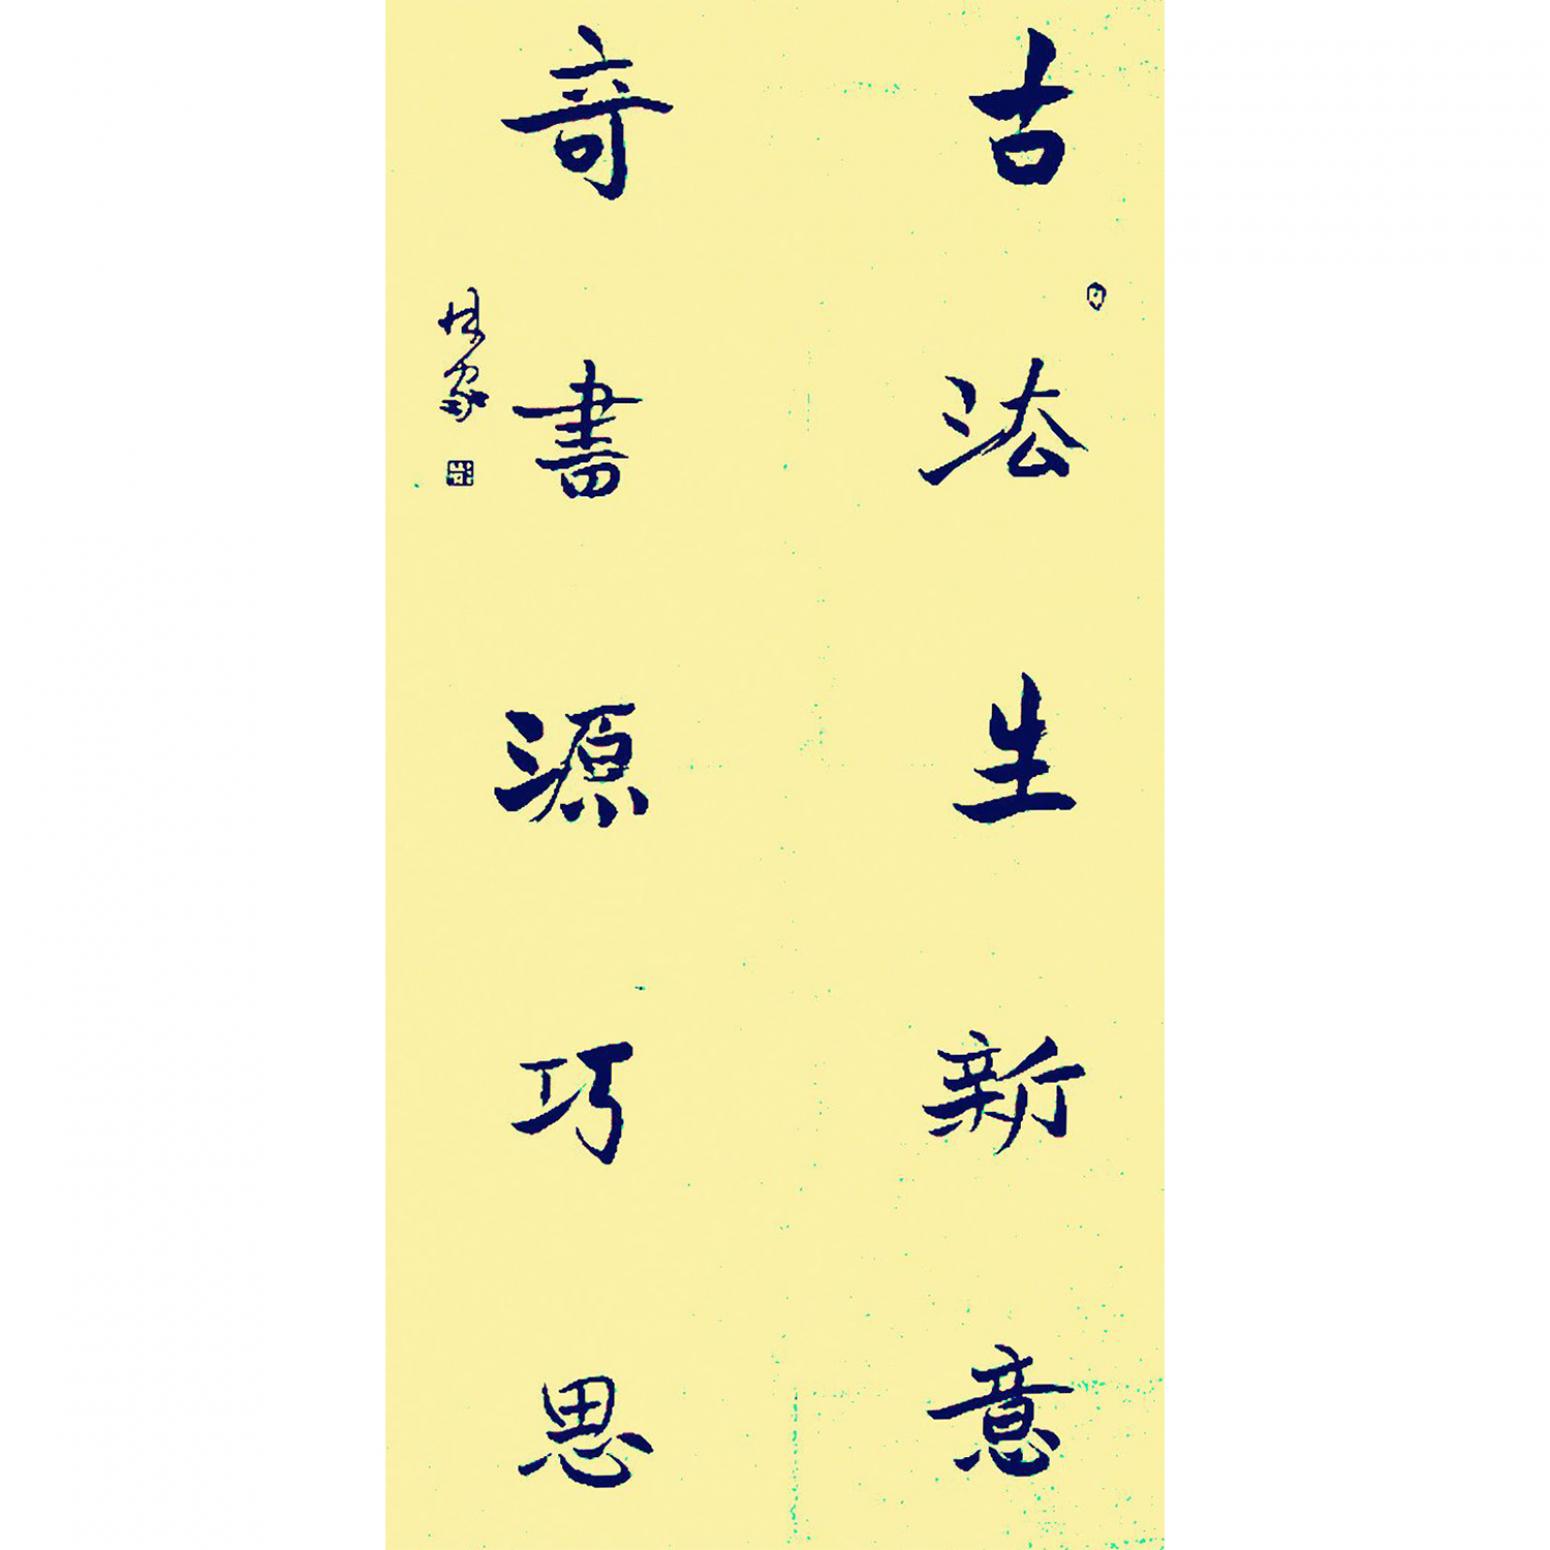 古法生新意
奇書源巧思